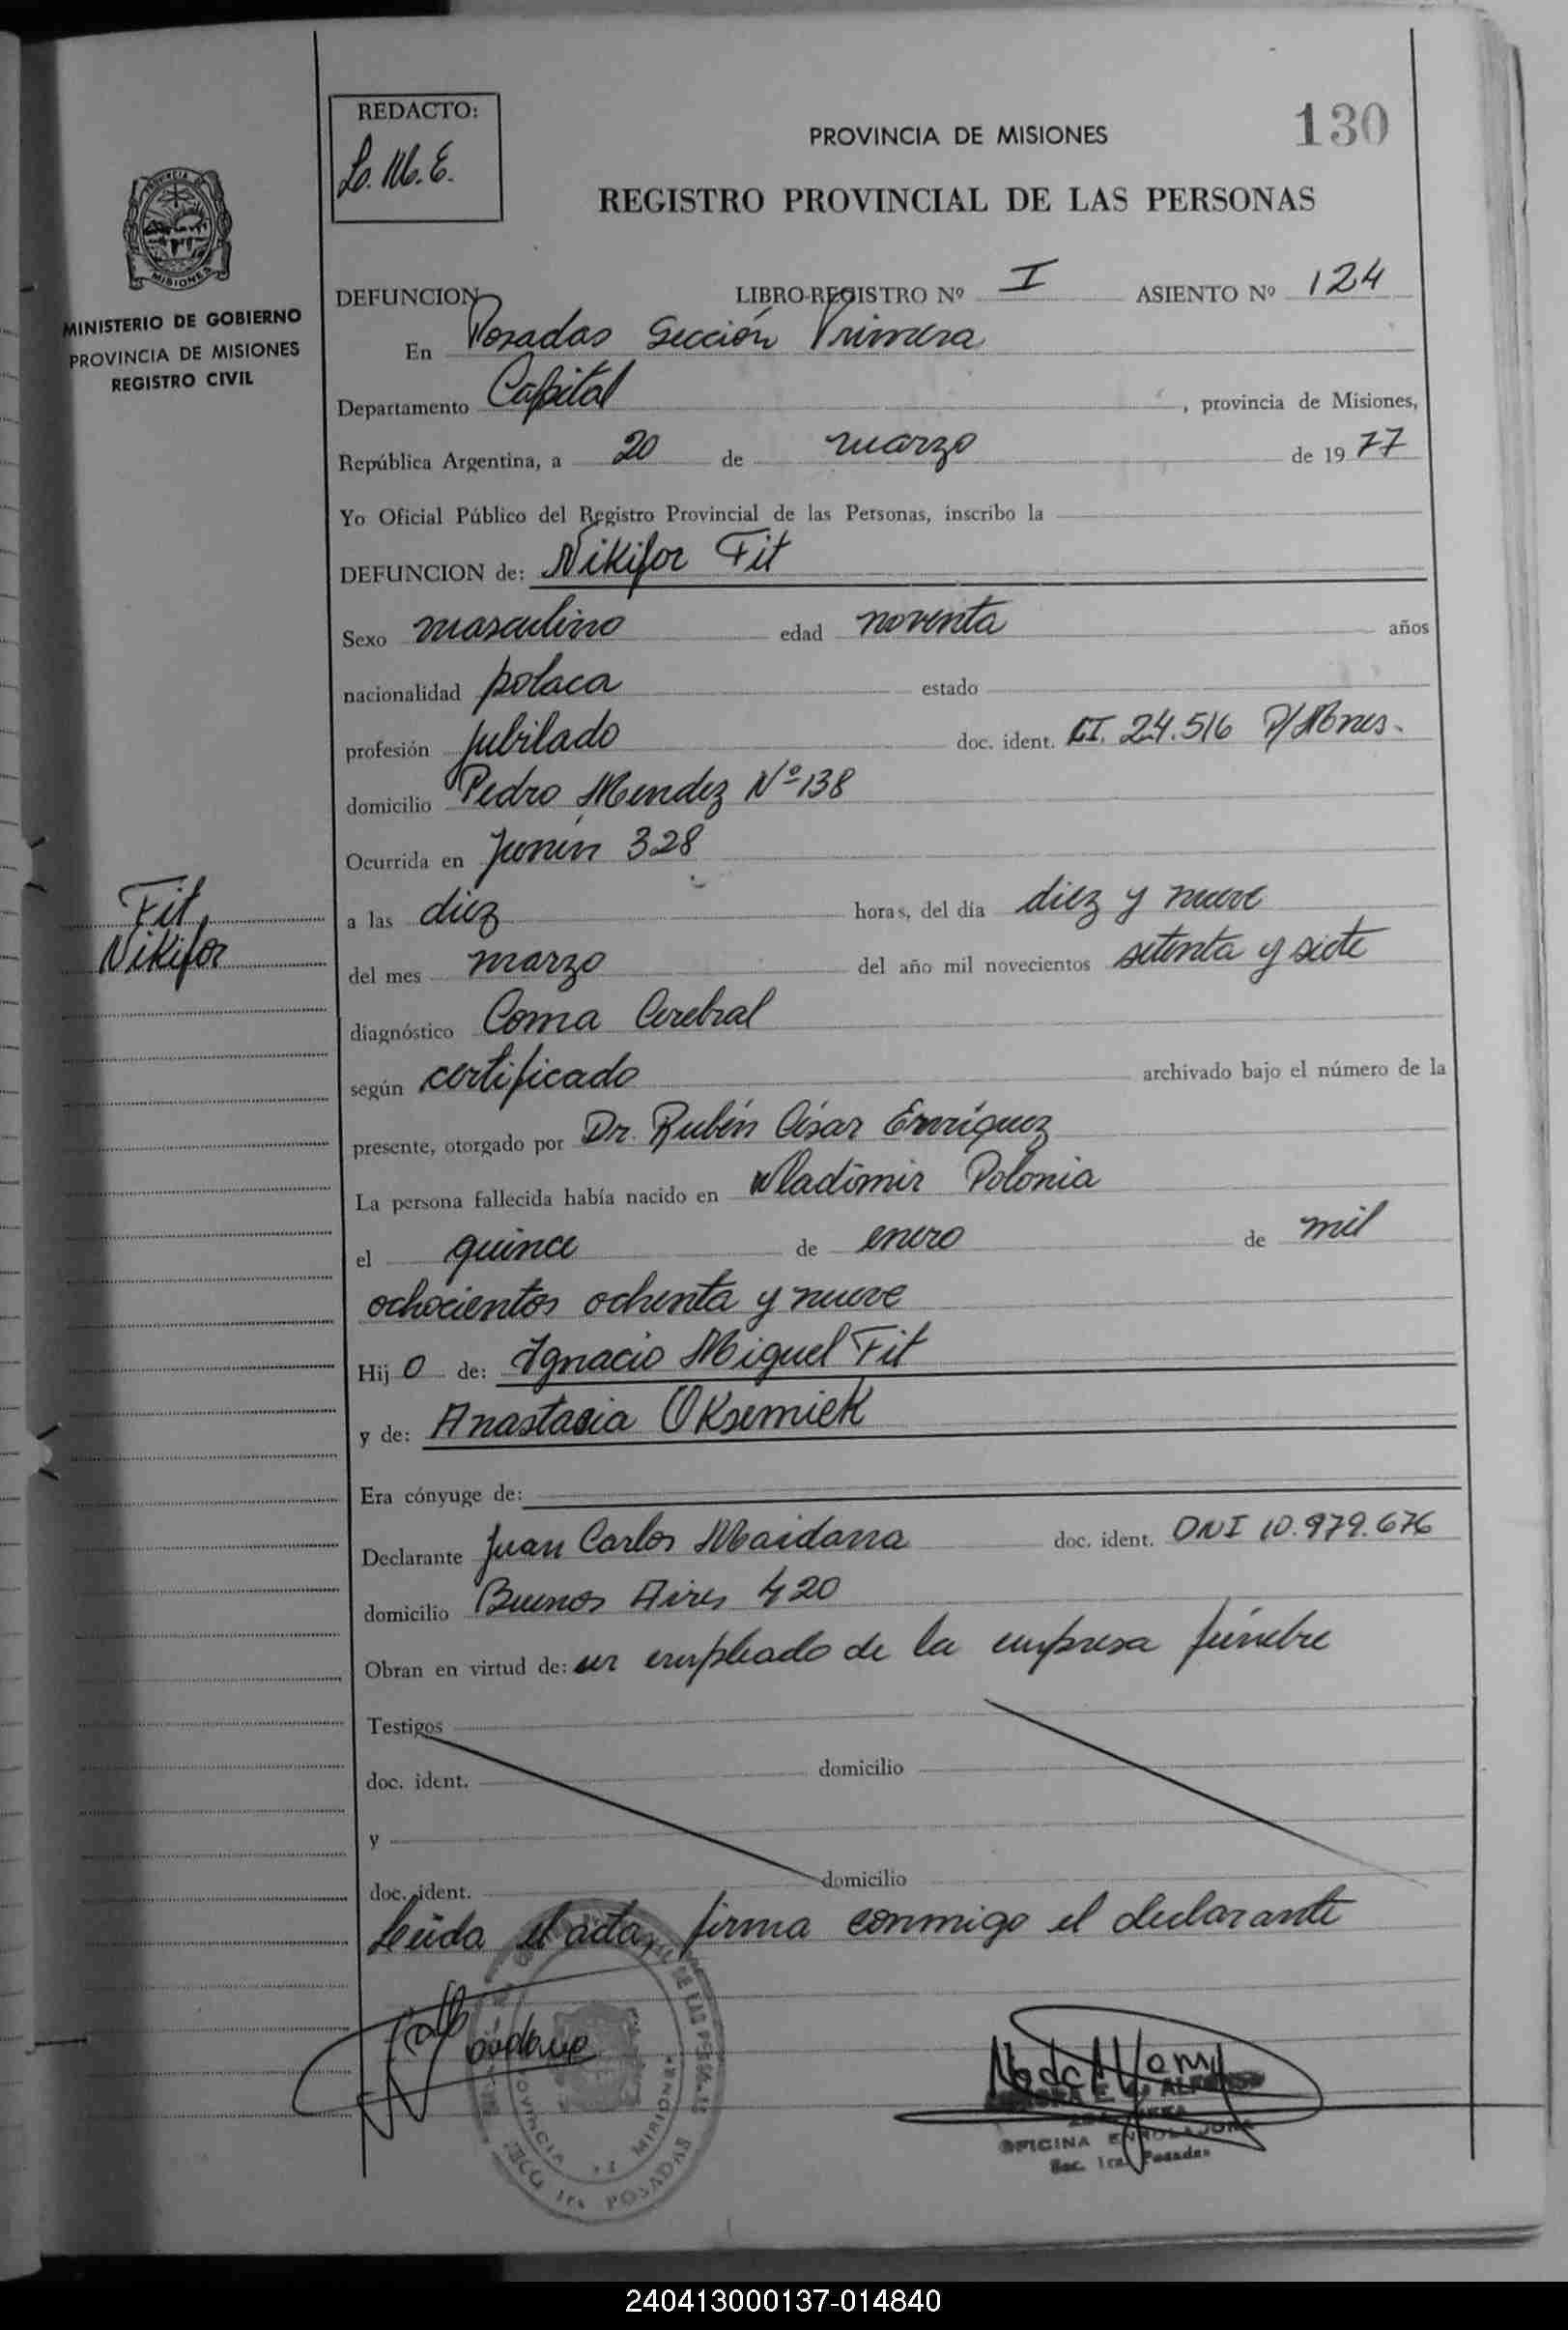 130
REDACTO:
L. M. E.
PROVINCIA DE MISIONES
REGISTRO PROVINCIAL DE LAS PERSONAS
PROVINCIA DE
MISIONES
MINISTERIO DE GOBIERNO
PROVINCIA DE MISIONES
REGISTRO CIVIL
DEFUNCION LIBRO-REGISTRO Nº I ASIENTO Nº 124
En Posadas Sección Primera
Departamento Capital , provincia de Misiones,
República Argentina, a 20 de marzo de 1977
Yo Oficial Público del Registro Provincial de las Personas, inscribo la
DEFUNCION de: Nikifor Fit
Sexo masculino edad noventa años
nacionalidad polaca estado
profesión jubilado doc. ident. CI. 24.516 P/Mnes.
domicilio Pedro Mendez Nº 138
Ocurrida en Junín 328
Fit,
Nikifor
a las diez horas, del día diez y nueve
del mes marzo del año mil novecientos setenta y siete
diagnóstico Coma Cerebral
según certificado archivado bajo el número de la
presente, otorgado por Dr. Rubén César Enríquez
La persona fallecida había nacido en Wladimir Polonia
el quince de enero de mil
ochocientos ochenta y nueve
Hijo de: Ignacio Miguel Fit
y de: Anastasia Oksemiek
Era cónyuge de:
Declarante Juan Carlos Maidana doc. ident. DNI 10.979.676
domicilio Buenos Aires 420
Obran en virtud de: ser empleado de la empresa fúnebre
Testigos
doc. ident. domicilio
y
doc. ident. domicilio
Leída el acta, firma conmigo el declarante
DE LAS
PROVINCIA MISIONES
1ra POSADAS
OFICINA ENROLADORA
Sec. 1ra. Posadas
240413000137-014840